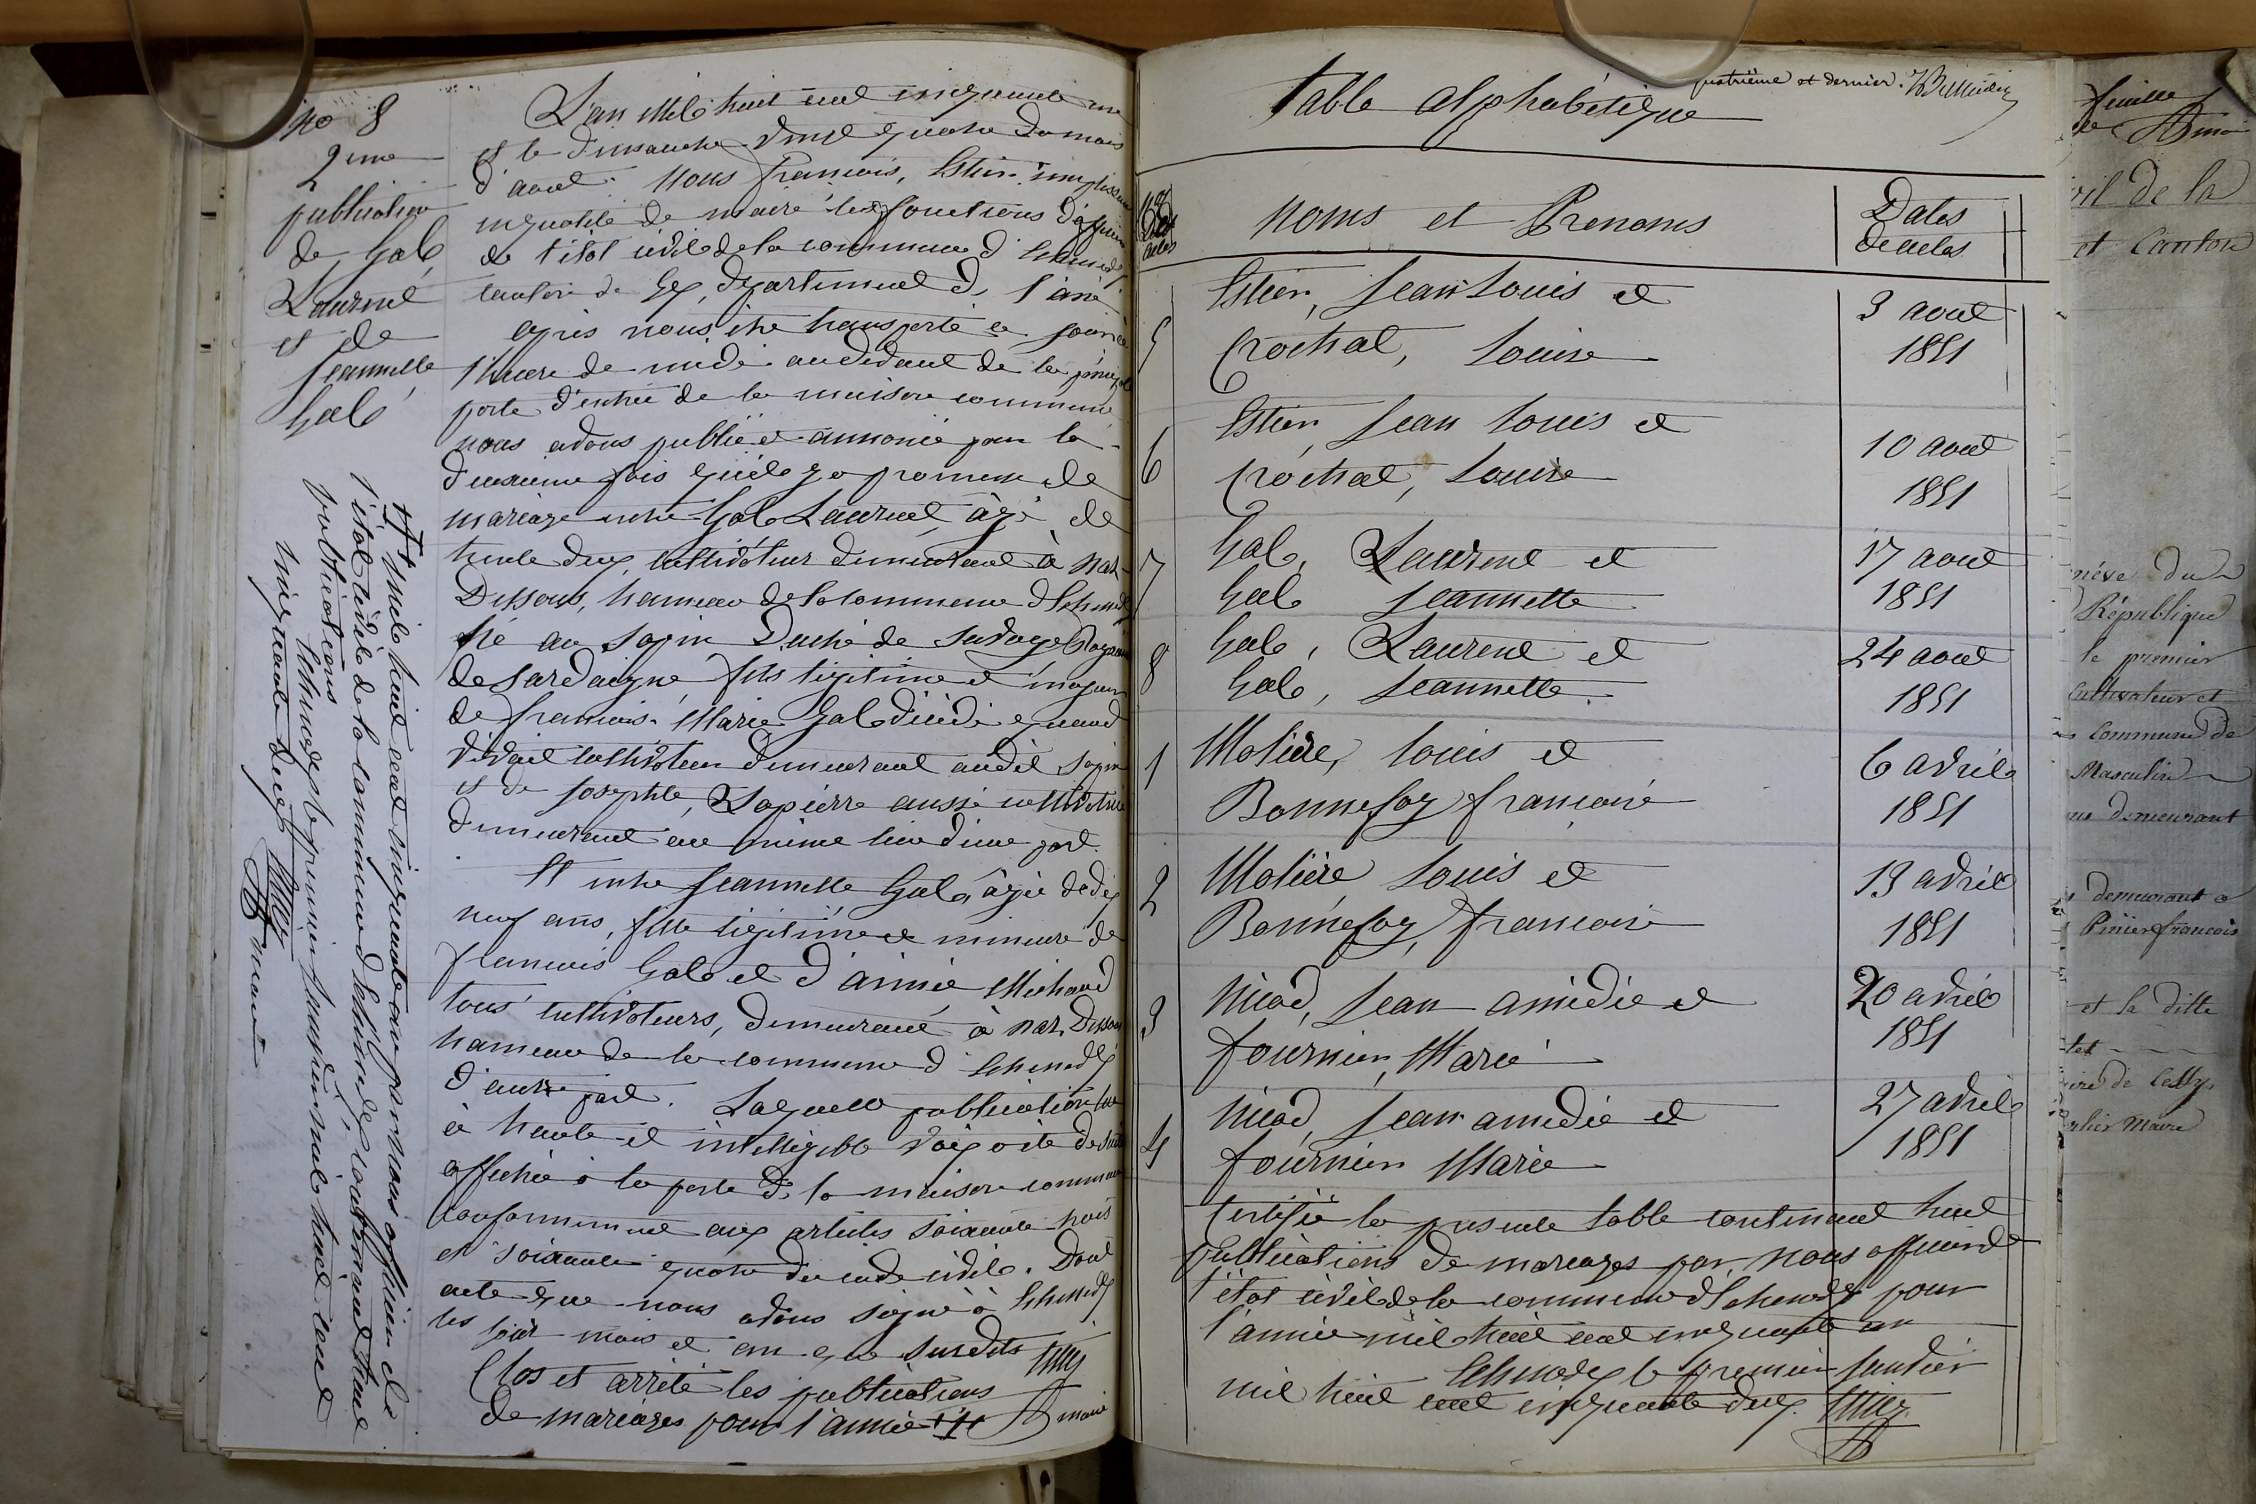 No 8
2me
publication
de Gal
Laurent
et de
Jeannette
Gal
L'an mil huit cent cinquante un
et le dimanche vingt quatre du mois
d'aout. Nous François, Estier, remplissant
en qualité de maire les fonctions d'officier
de l'état civil de la commune d'Echenevex
canton de Gex, département de l'ain
après nous être transporté ce jour à
l'heure de midi audevant de la principale
porte d'entrée de la maison commune
nous avons publié et annoncé pour la
deuxième fois qu'il y a promesse de
mariage entre Gal Laurent, âgé de
trente deux, cultivateur demeurant à Naz-
Dessous, hameau de la commune d'Echenevex
né au Sapin Duché de Savoye Royaume
de Sardaigne, fils légitime et majeur
de François-Marie Gal décédé quand
vivait cultivateur demeurant audit Sapin
et de Josephte, Lapierre aussi cultivatrice
demeurant au même lieu d'une part.
Et entre Jeannette Gal, âgée de dix
neuf ans, fille légitime et mineure de
François Gal et d'aimée Michaud
tous cultivateurs, demeurant à Naz-Dessous
hameau de la commune d'Echenevex
d'autre part. Laquelle publication lue
à haute et intelligible voix a été de suite
affichée à la porte de la maison commune
conformément aux articles soixante trois
et soixante quatre du code civil. Dont
acte que nous avons signé à Echenevex
les jour mois et an que susdits
Clos et arrêté les publications
de mariages pour l'année maire
mil huit cent cinquante un par nous officier de
l'état civil de la commune d'Echenevex contenant huit
publications
Echenevex le premier janvier mil huit cent
cinquante deux
maire
quatrième et dernier.
Table Alphabétique
Nos des actes
Noms et Prenoms
Dates de actes
5 Estier, Jean Louis et Crochat, Louise 3 aout 1851
6 Estier, Jean Louis et Crochat, Louise 10 aout 1851
7 Gal, Laurent et Gal Jeannette 17 aout 1851
8 Gal, Laurent et Gal, Jeannette 24 aout 1851
1 Molière, Louis et Bonnefoy françoise 6 avril 1851
2 Molière Louis et Bonnefoy, françoise 13 avril 1851
3 Nicod, Jean amédée et fournier, Marie 20 avril 1851
4 Nicod, Jean amédée et fournier Marie 27 avril 1851
Certifié la presente table contenant huit
publications de mariages par nous officier de
l'état civil de la commune d'Echenevex pour
l'année mil huit cent cinquante un
Echenevex le premier janvier
mil huit cent cinquante deux.
feuille
de la
et Canton
République
le premier
Cultivateur et
Commune de
Masculin
demeurant
demeurant a
françois
et la ditte
de Cessy
Maire